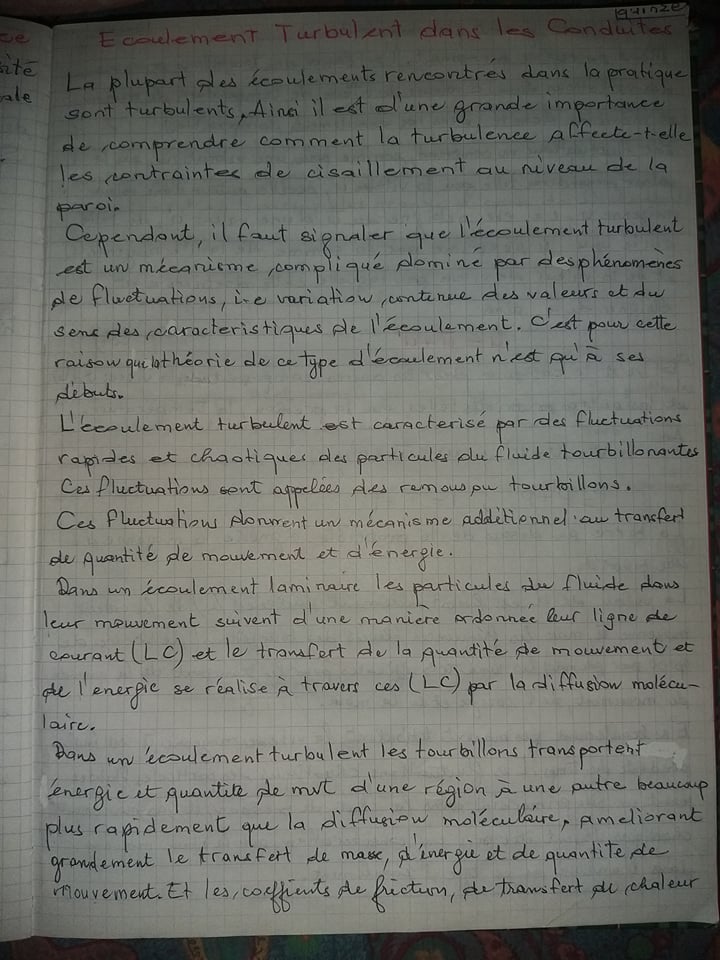 quinze
Ecoulement Turbulent dans les Conduites
ce
sité
ale
La plupart des écoulements rencontrés dans la pratique
sont turbulents, Ainsi il est d'une grande importance
de comprendre comment la turbulence affecte-t-elle
les contraintes de cisaillement au niveau de la
paroi.
Cependant, il faut signaler que l'écoulement turbulent
est un mécanisme compliqué dominé par des phénomènes
de fluctuations, i-e variation continue des valeurs et du
sens des caracteristiques de l'écoulement. C'est pour cette
raison qui la théorie de ce type d'écoulement n'est qu'à ses
débuts.
L'écoulement turbulent est caracterisé par des fluctuations
rapides et chaotiques des particules du fluide tourbillonantes
Ces fluctuations sont appelées des remous ou tourbillons.
Ces fluctuations donnent un mécanisme additionnel au transfert
de quantité de mouvement et d'énergie.
Dans un écoulement laminaire les particules du fluide dans
leur mouvement suivent d'une manière ordonnée leur ligne de
courant (LC) et le transfert de la quantité de mouvement et
de l'energie se réalise à travers ces (LC) par la diffusion molécu-
laire.
Dans un écoulement turbulent les tourbillons transportent
énergie et quantité de mvt d'une région à une autre beaucoup
plus rapidement que la diffusion moléculaire, ameliorant
grandement le transfert de masse, d'énergie et de quantité de
mouvement. Et les coeffients de friction, de transfert de chaleur